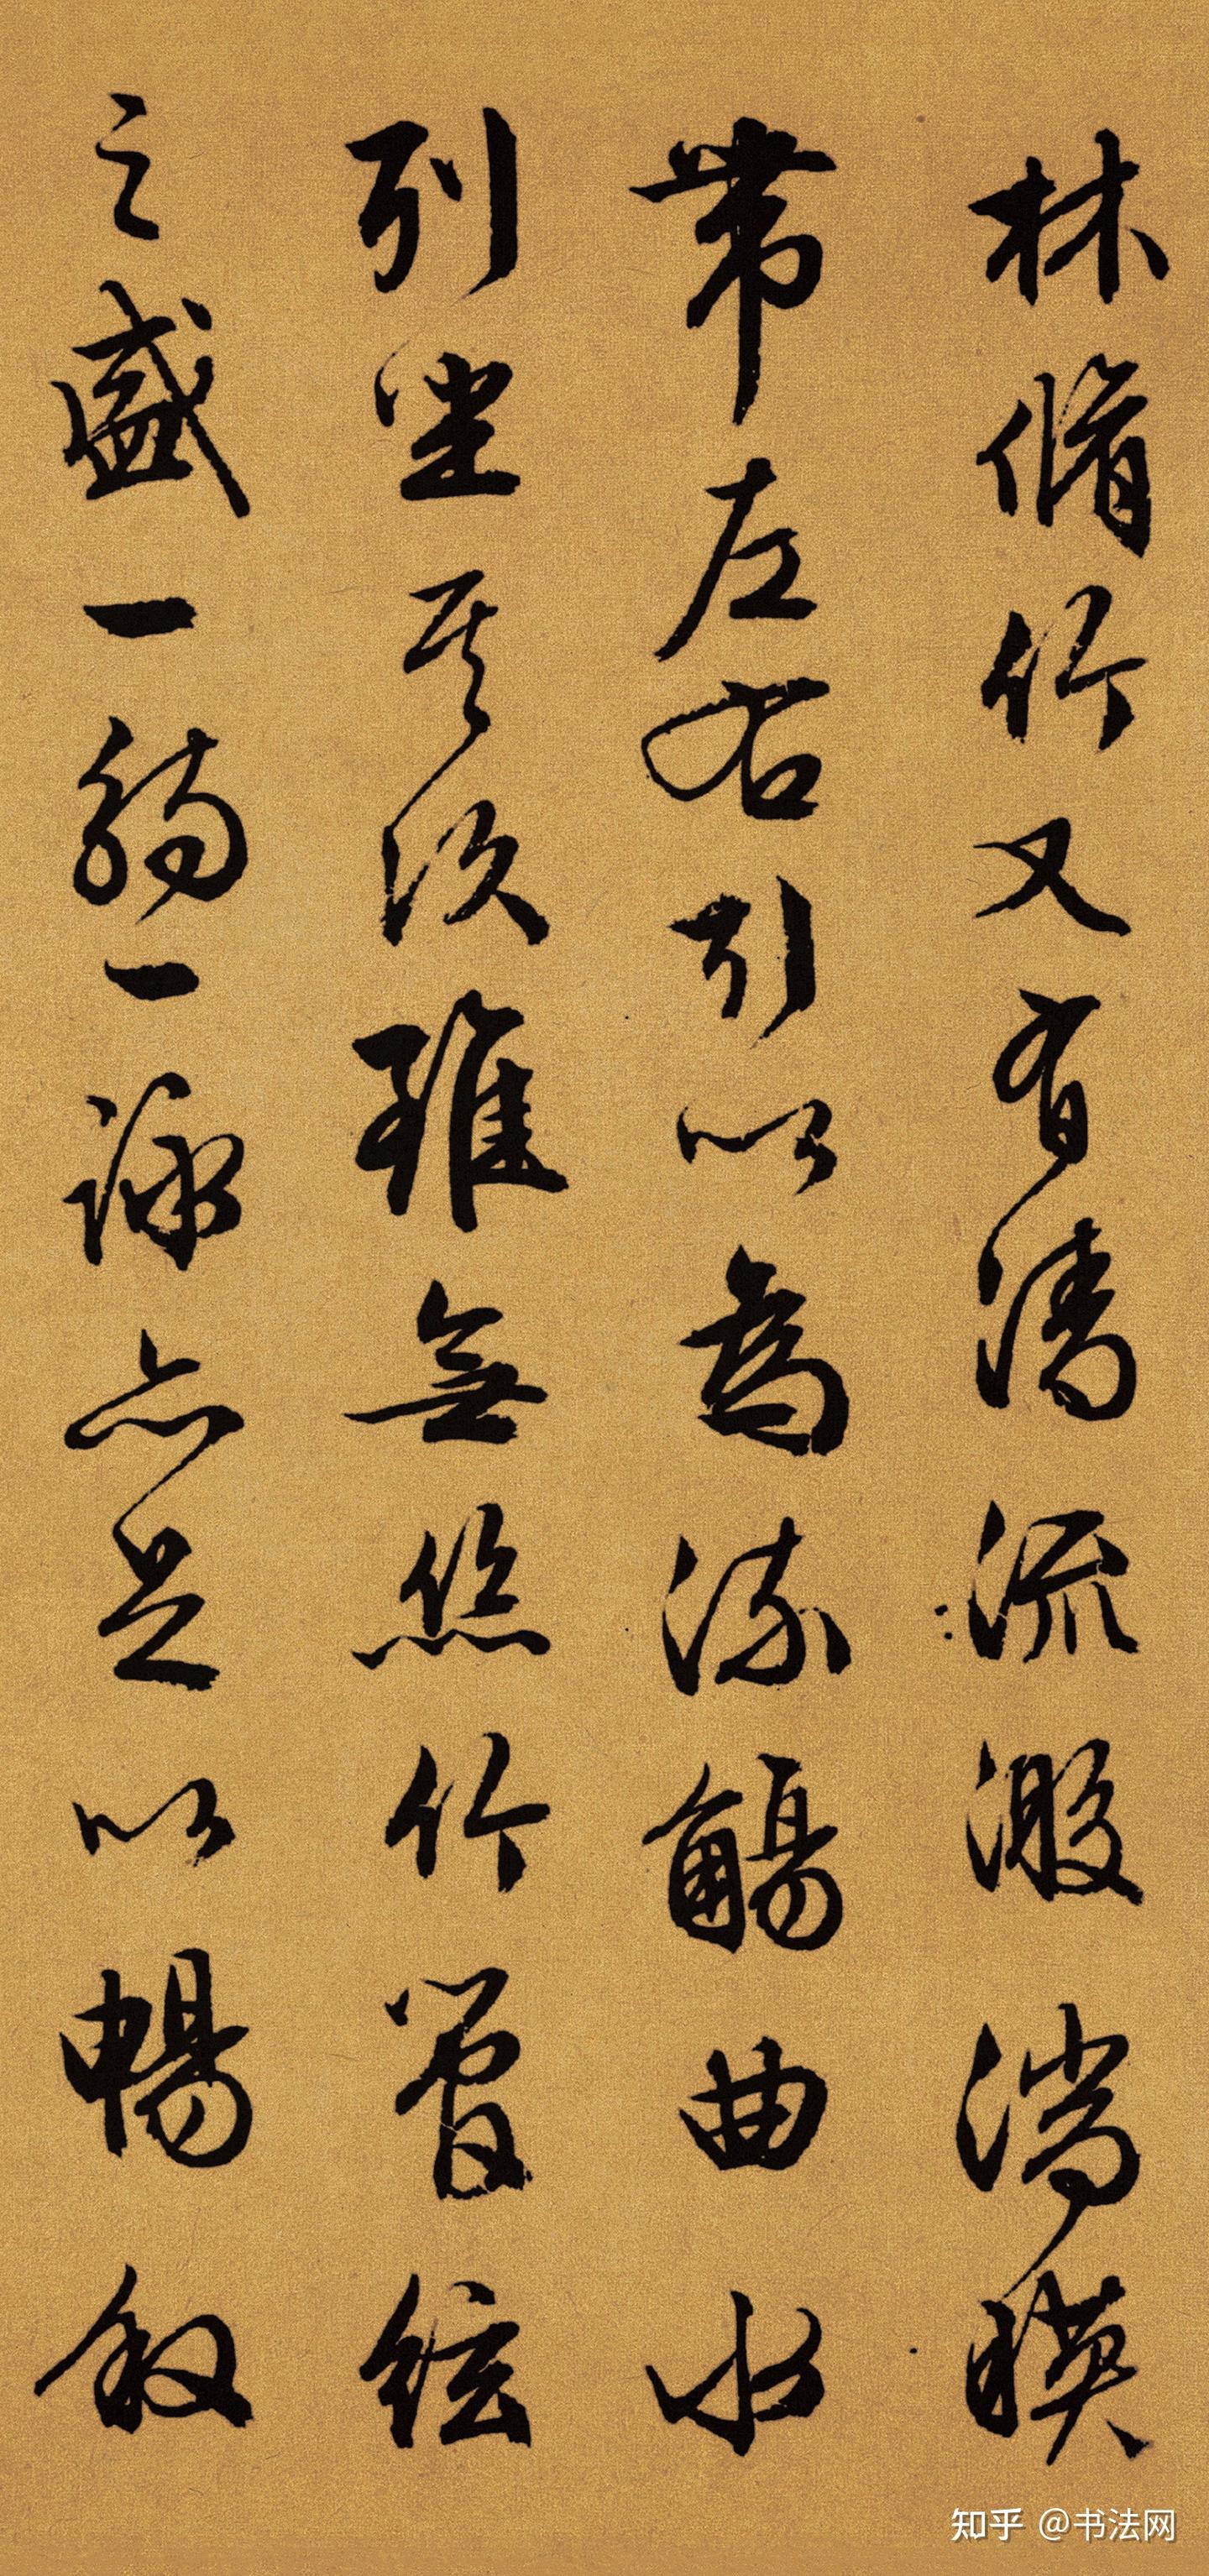 林脩竹又有清流激湍暎
帶左右引以為流觴曲水
列坐其次雖無絲竹管絃
之盛一觴一詠亦足以暢叙
知乎 @书法网